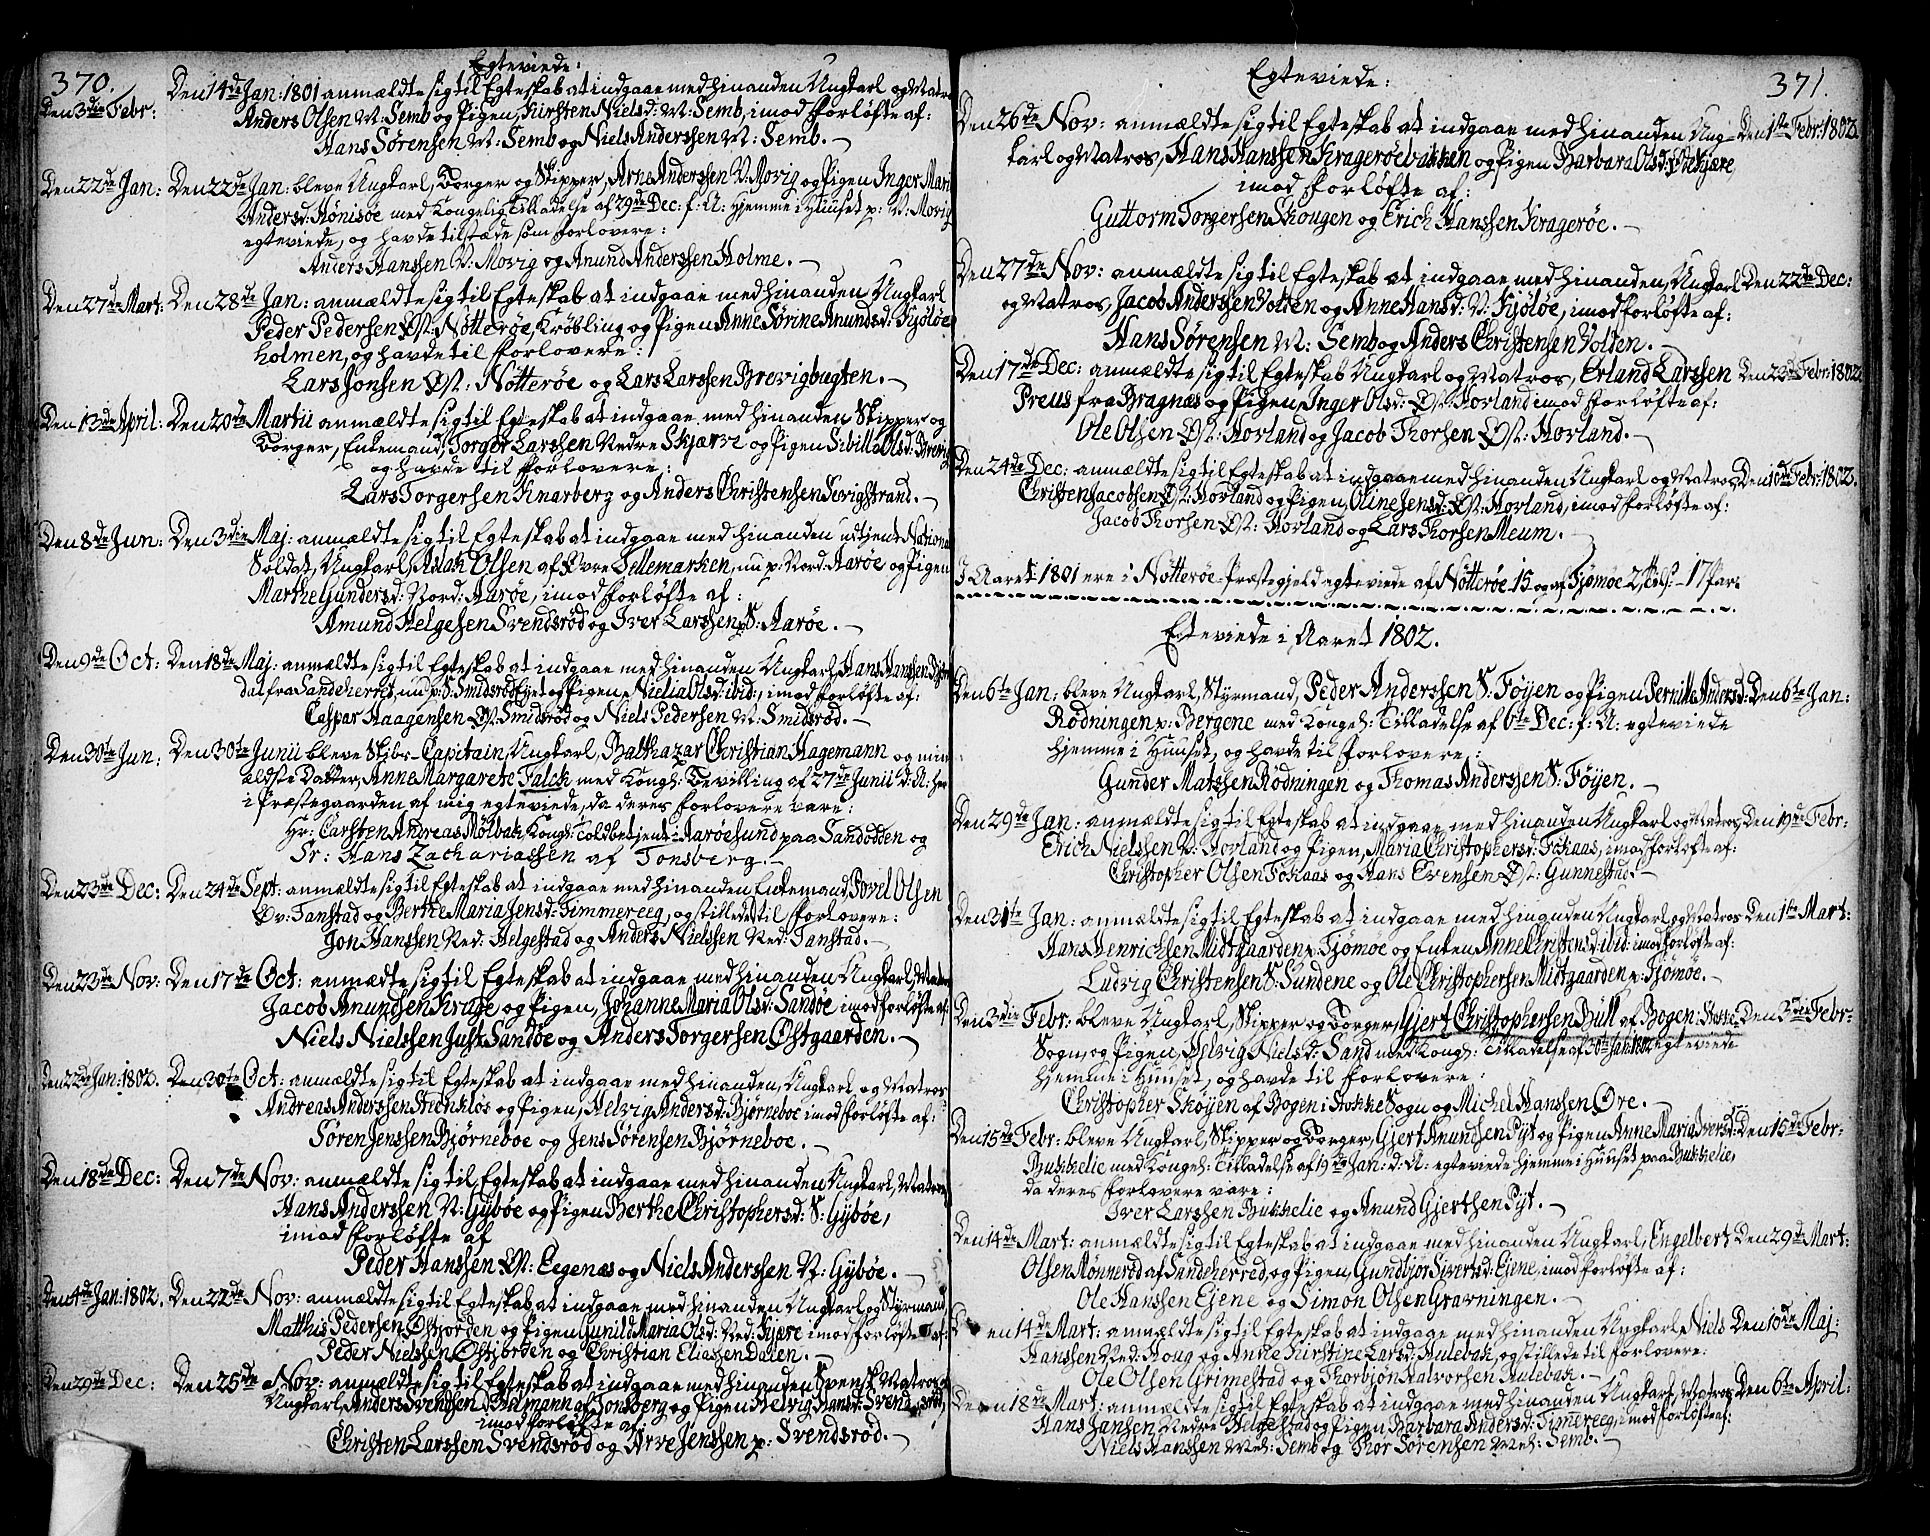 370.
Egteviede:
Den 3die Febr: Den 14de Jan: 1801 anmældte sig til Egteskab at indgaae med hinanden Ungkarl og Matr
Anders Olsen M: Semb og Pigen, Kirsten Nielsd: M: Semb, imod Forløfte af:
Hans Sørensen M: Semb og Niels Anderssen M: Semb. —
Den 22de Jan: Den 22de Jan: bleve Ungkarl, Borger og Skipper, Arne Anderssen V: Movig og Pigen Inger Mari
Andersd: Hønisøe med Kongelig Tilladelse af 29de Dec: f: A: hjemme i Huuset p: V: Movig
egteviede, og havde tilstæde som Forlovere:
Anders Hanssen V: Movig og Anund Anderssen Holme. —
Den 27de Mart: Den 28de Jan: anmældte sig til Egteskab at indgaae med hinanden Ungkarl
Peder Pedersen Øst: Nøtterøe, Krøbling og Pigen Anne Sørine Anundsd: Fjøløe
holmen, og havde til Forlovere:
Lars Jonsen Øst: Nøtterøe og Lars Larssen Brevigbugten. —
Den 13de April: Den 20de Martii anmældte sig til Egteskab at indgaae med hinanden Skipper og
Borger, Enkemand, Torger Larssen Nedre Skjærre og Pigen Sibille Olsd: Brevig
og havde til Forlovere:
Lars Torgersen Knarberg og Anders Christensen Sevigstrand. —
Den 8de Jun: Den 3die Maj: anmældte sig til Egteskab at indgaae med hinanden udtjent National
Soldat, Ungkarl, Aslak Olsen af Øvre Tellemarken, nu p: Nord: Aarøe og Pigen
Marthe Gundersd: Nord: Aarøe, imod Forløfte af:
Amund Helgesen Svendsrød og Iver Larssen S: Aarøe. —
Den 9de Oct: Den 18de Maj: anmældte sig til Egteskab at indgaae med hinanden Ungkarl, Hans Hansen
dal fra Sandeherret, nu p: S: Smidsrød Eje og Pigen Nielia Olsd: ibid:, imod Forløfte af:
Caspar Haagensen Øst: Smidsrød og Niels Pedersen M: Smidsrød. —
Den 30te Jun: Den 30te Junii bleve Skibs-Capitain, Ungkarl, Balthazar Christian Hagemann og min
ældste Datter, Anne Margarete Falck med Kongl: Bevilling af 27de Junii d: A: her
i Præstegaarden af mig egteviede, da deres Forlovere vare:
Hr: Carsten Andreas Mølbak Kongl: Toldbetjent i Aarøesund paa Sandodden og
Sr: Hans Zachariassen af Tonsberg. —
Den 23de Dec: Den 24de Sept: anmældte sig til Egteskab at indgaae med hinanden Enkemand, Povel Olsen
Øv: Tanstad og Berthe Maria Jensd: Timmereeg, og stillede til Forlovere:
Jon Hanssen Ned: Helgestad og Anders Nielssen Ned: Tanstad. —
Den 23de Nov: Den 17de Oct: anmældte sig til Egteskab at indgaae med hinanden Ungkarl, Matros
Jacob Anundsen Krage og Pigen, Johanne Maria Olsd: Sandøe imod Forløfte af:
Niels Nielssen Just Sandøe og Anders Torgersen Østgaarden. —
Den 22de Jan: 1802. Den 30te Oct: anmældte sig til Egteskab at indgaae med hinanden, Ungkarl og Matros
Andreas Anderssen Steenkløs og Pigen, Helvig Andersd: Bjørneboe imod Forløfte af:
Søren Jenssen Bjørneboe og Jens Sørensen Bjørneboe. —
Den 18de Dec: Den 7de Nov: anmældte sig til Egteskab at indgaae med hinanden Ungkarl, Matros
Hans Anderssen N: Gybøe og Pigen Berthe Christophersd: S: Gybøe,
imod Forløfte af
Peder Hanssen Øst: Eegenæs og Niels Anderssen N: Gybøe. —
Den 4de Jan: 1802. Den 22de Nov: anmældte sig til Egteskab at indgaae med hinanden Ungkarl og Styrmand,
Matthis Pedersen Østjorden og Pigen Gunild Maria Olsd: Ned: Kjære imod Forløfte af:
Peder Nielssen Østjorden og Christian Eliassen Dalen. —
Den 29de Dec: Den 25de Nov: anmældte sig til Egteskab at indgaae med hinanden Svensk Matros og
Ungkarl, Anders Svenssen Bremann af Tonsberg og Pigen Helvig Hansd: Svendsrød,
imod Forløfte af:
Christen Larssen Svendsrød og Arve Jenssen p: Svendsrød. —
Egteviede:
371.
Den 26de Nov: anmældte sig til Egteskab at indgaae med hinanden Ung- Den 1ste Febr: 1802.
karl og Matros, Hans Hanssen Kragerøebakken og Pigen Barbara Olsd: Ø: Kjære,
imod Forløfte af:
Guttorm Torgersen Skougen og Erich Hanssen Kragerøe. —
Den 27de Nov: anmældte sig til Egteskab at indgaae med hinanden, Ungkarl Den 22de Dec:
og Matros, Jacob Anderssen Volten og Anne Hansd: N: Fjøløe, imod Forløfte af:
Hans Sørensen M: Semb og Anders Christensen Volten. —
Den 17de Dec: anmældte sig til Egteskab Ungkarl og Matros, Erland Larssen Den 23de Febr: 1802.
Preus fra Bragnæs og Pigen, Inger Olsd: Øst: Horland imod Forløfte af:
Ole Olsen Øst: Horland og Jacob Thorsen Øst: Horland. —
Den 24de Dec: anmældte sig til Egteskab at indgaae med hinanden Ungkarl og Matros Den 16de Febr: 1802.
Christen Jacobsen Øst: Horland og Pigen, Oline Jensd: Øst: Horland, imod Forløfte af:
Jacob Thorsen Øst: Horland og Lars Thorsen Meum. —
I Aaret 1801 ere i Nøtterøe-Præstegjeld egteviede af Nøtterøe 15 og af Tjømøe 2, tils: — 17 Par.
Eteviede i Aaret 1802.
Den 6te Jan: bleve Ungkarl, Styrmand, Peder Anderssen S: Føyen og Pigen Pernille Andersd: Den 6te Jan:
Rødningen p: Bergene med Kongel: Tilladelse af 6te Dec: f: A: egteviede
hjemme i Huuset, og havde til Forlovere:
Gunder Matssen Rødningen og Thomas Anderssen S: Føyen. —
Den 29de Jan: anmældte sig til Egteskab at indgaae med hinanden Ungkarl og Matros Den 19de Febr:
Erich Nielssen N: Horland og Pigen, Maria Christophersd: Fohaas, imod Forløfte af:
Christopher Olsen Fohaas og Hans Evensen Øst: Gunnestad. —
Den 31te Jan: anmældte sig til Egteskab at indgaae med hinanden Ungkarl og Matros Den 1ste Mart:
Hans Henrichsen Midtgaarden p: Tjømøe og Enken Anne Christensd: ibid: imod Forløfte af:
Ludvig Christensen S: Sundene og Ole Christophersen Midtgaarden p: Tjømøe. —
Den 3die Febr: bleve Ungkarl, Skipper og Borger, Gjert Christophersen Bull af Bogen i Stokke Den 3die Febr:
Sogn, og Pigen, Helvig Nielsd: Sand med Kongl: Tilladelse af 30te Jan: 1802 egteviede
hjemme i Huuset, og havde til Forlovere:
Christopher Skøyen af Bogen i Stokke Sogn og Michel Hanssen Øre. —
Den 15de Febr: bleve Ungkarl, Skipper og Borger, Gjert Anundsen Pyt og Pigen Anne Maria Iversd: Den 15de Febr:
Bukkelie med Kongel: Tilladelse af 19de Jan: d: A: egteviede hjemme i Huuset paa Bukkelie,
da deres Forlovere vare:
Iver Larssen Bukkelie og Anund Gjertsen Pyt. —
Den 14de Mart: anmældte sig til Egteskab at indgaae med hinanden Ungkarl, Engelbert Den 29de Mart:
Olsen Mønnerød af Sandeherred, og Pigen, Gundbjør Sivertsd: Ejene, imod Forløfte af:
Ole Hanssen Ejene og Simon Olsen Gravningen. —
Den 14de Mart: anmældte sig til Egteskab at indgaae med hinanden Ungkarl, Niels Den 10de Maj:
Hanssen Ned: Houg og Anne Kirstine Larsd: Hulebak, og stillede til Forlovere:
Ole Olsen Grimestad og Thorbjøn Halvorsen Hulebak. —
Den 18de Mart: anmældte sig til Egteskab at indgaae med hinanden Ungkarl, Matros Den 6te April:
Hans Jansen Nedre Helgestad og Pigen Barbara Andersd: Timereeg, imod Forløfte af:
Niels Hanssen Mel: Semb og Thor Sørensen Mel: Semb. —